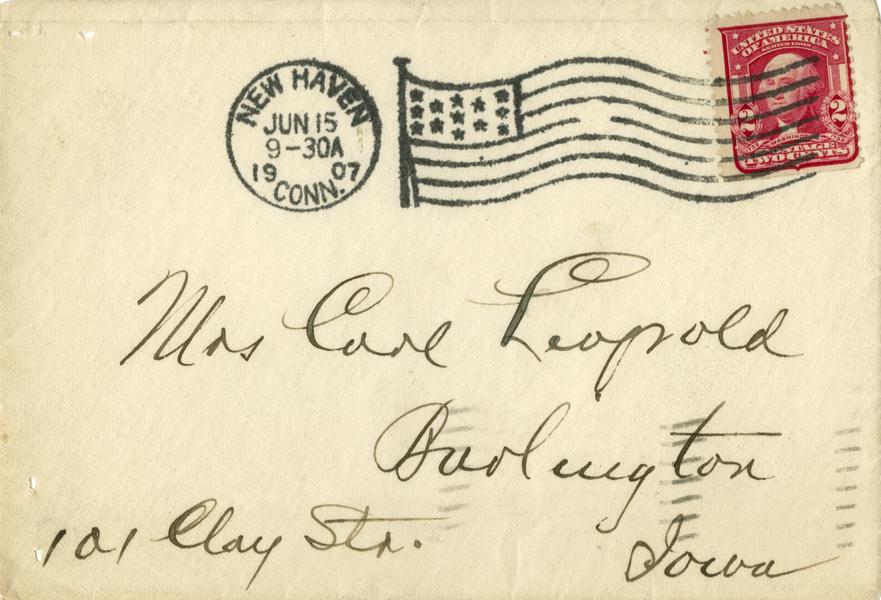 NEW HAVEN
JUN 15
9-30A
1907
CONN.
UNITED STATES
OF AMERICA
SERIES 1902
2 2
WASHINGTON
POSTAGE
TWO CENTS
Mrs Carl Leopold
Burlington
101 Clay Str.
Iowa